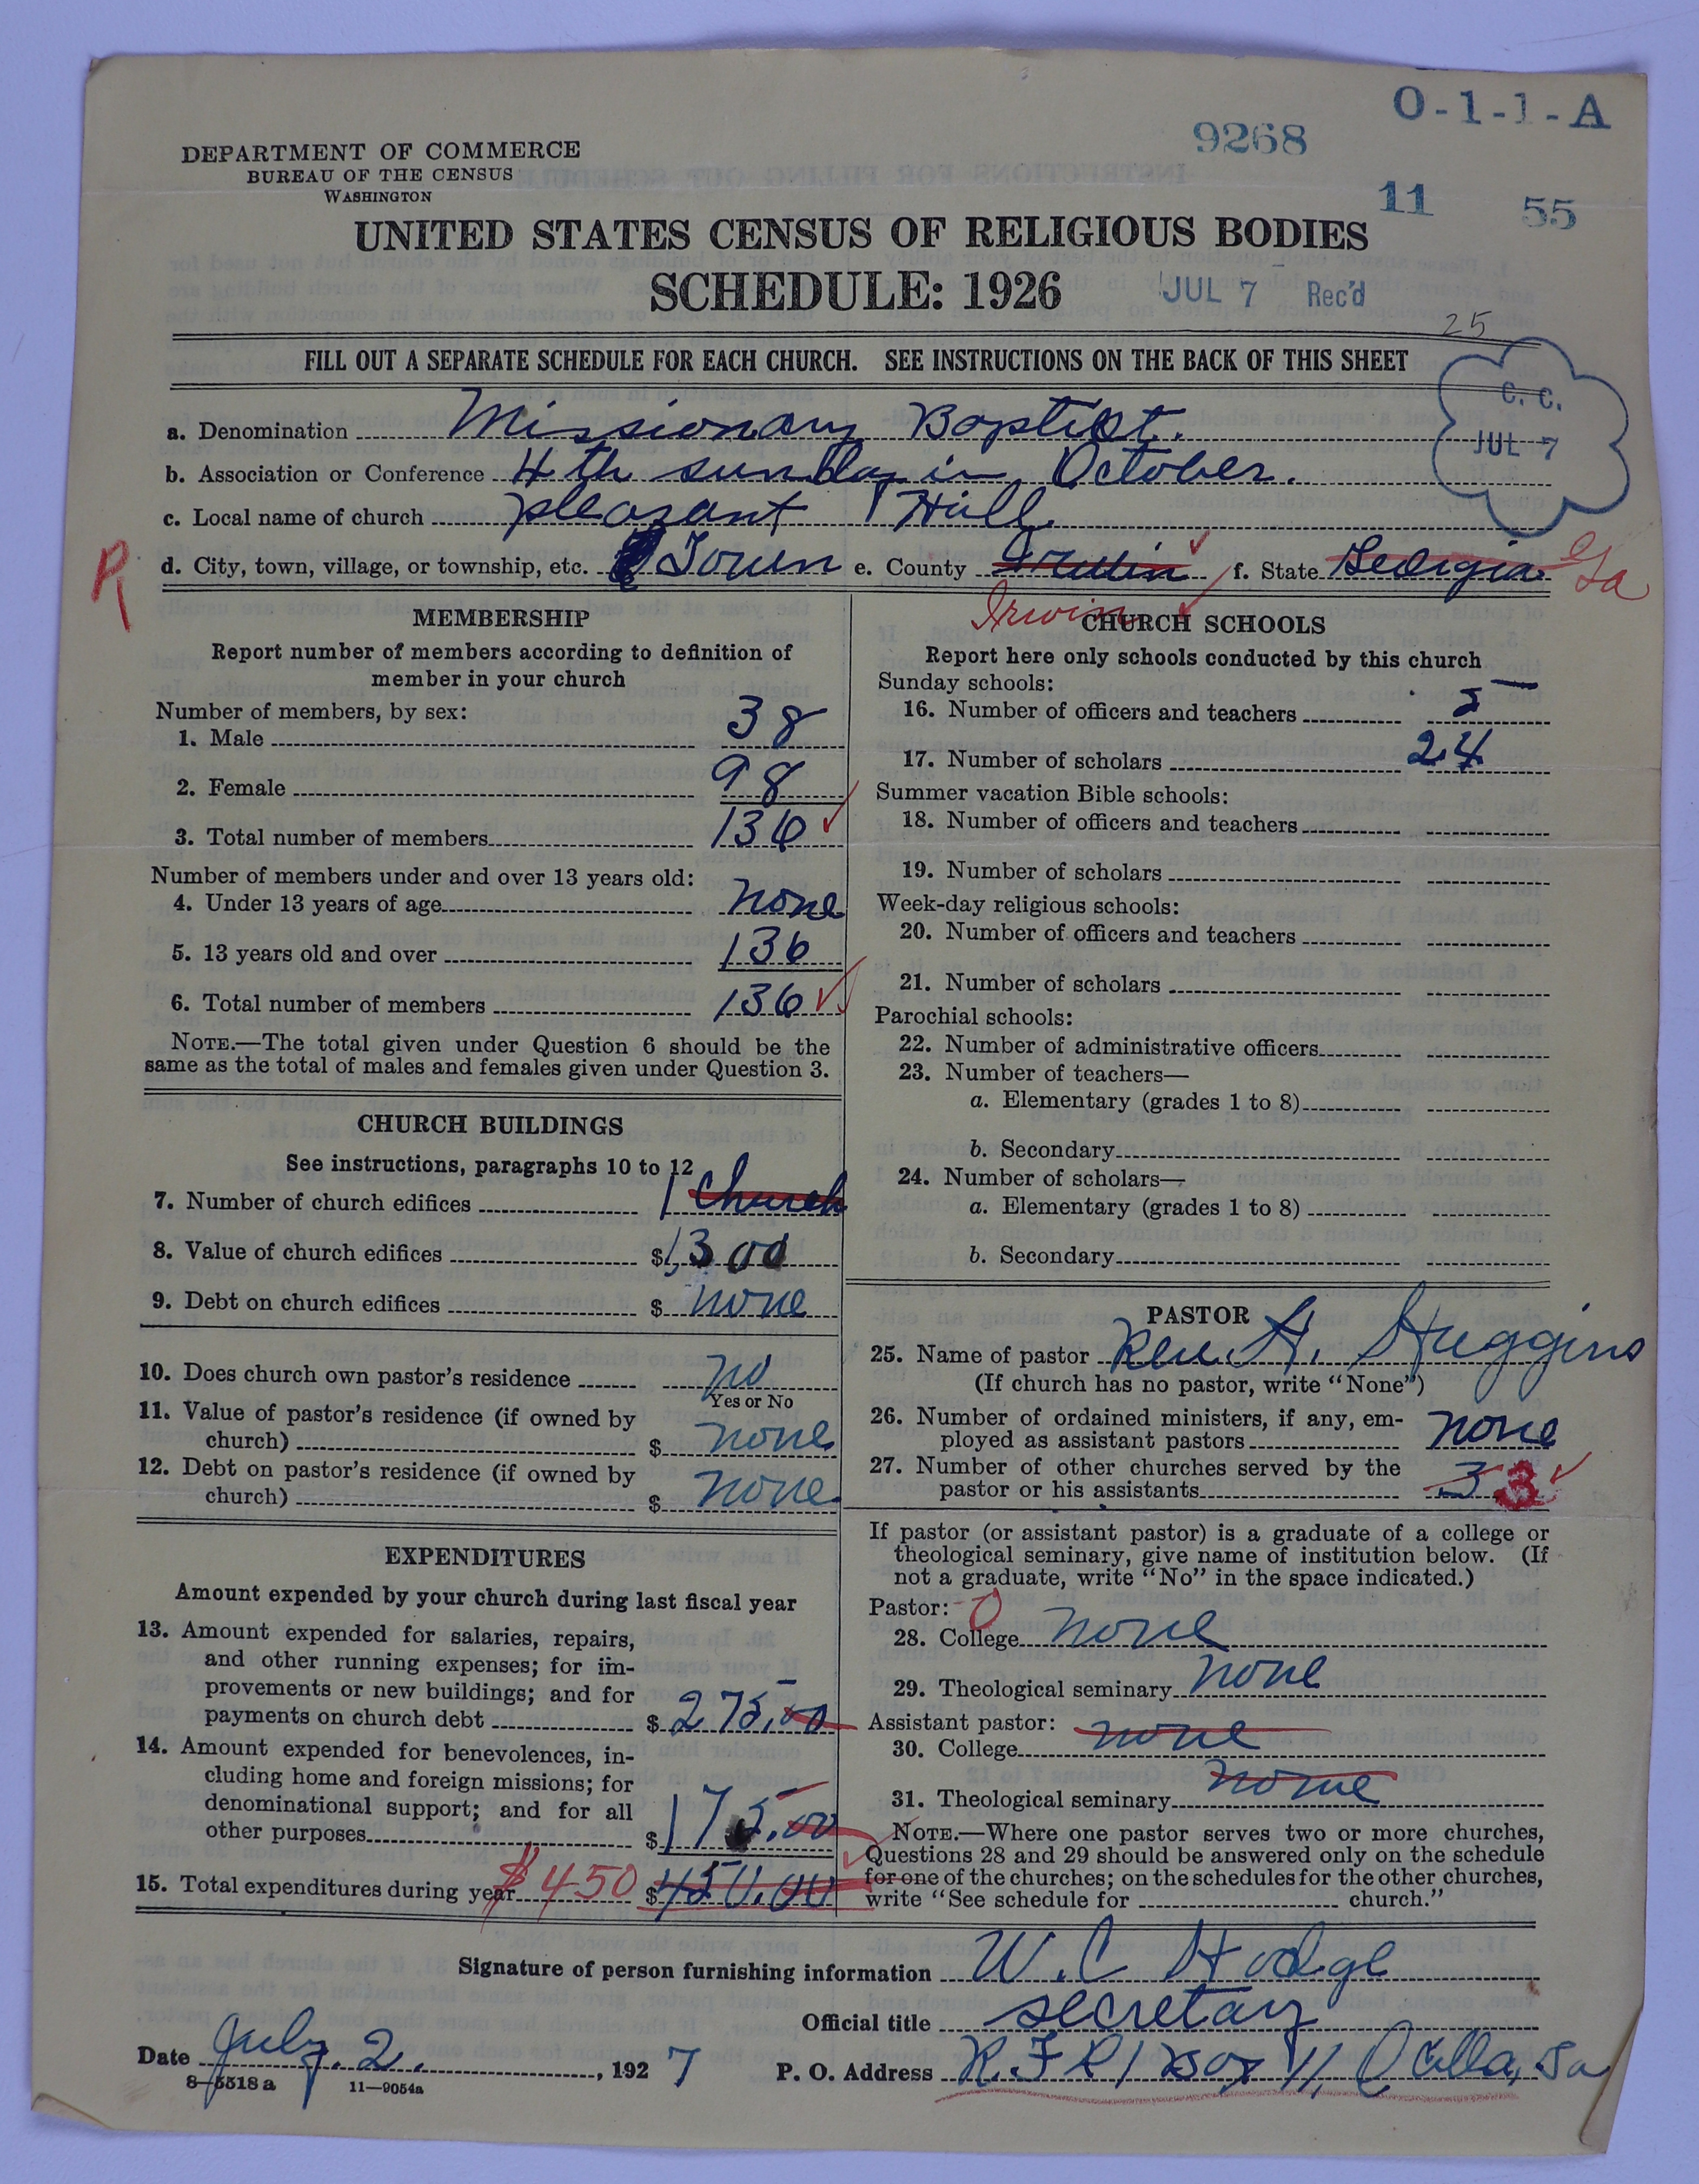 O-1-1-A
9268
DEPARTMENT OF COMMERCE
BUREAU OF THE CENSUS
WASHINGTON
11 55
UNITED STATES CENSUS OF RELIGIOUS BODIES
SCHEDULE: 1926
JUL 7 Rec'd
25
FILL OUT A SEPARATE SCHEDULE FOR EACH CHURCH. SEE INSTRUCTIONS ON THE BACK OF THIS SHEET
C. C.
JUL 7
a. Denomination Missionary Baptist.
b. Association or Conference 4th sunday in October.
c. Local name of church pleasant Hill
R
d. City, town, village, or township, etc. Town e. County f. State Georgia Ga
Irwin
MEMBERSHIP
Report number of members according to definition of
member in your church
Number of members, by sex:
1. Male 38
2. Female 98
3. Total number of members 136
Number of members under and over 13 years old:
4. Under 13 years of age none
5. 13 years old and over 136
6. Total number of members 136
NOTE.—The total given under Question 6 should be the
same as the total of males and females given under Question 3.
CHURCH BUILDINGS
See instructions, paragraphs 10 to 12
7. Number of church edifices 1 Church
8. Value of church edifices $1,300
9. Debt on church edifices $ none
10. Does church own pastor's residence no
Yes or No
11. Value of pastor's residence (if owned by
church) $ none
12. Debt on pastor's residence (if owned by
church) $ none
EXPENDITURES
Amount expended by your church during last fiscal year
13. Amount expended for salaries, repairs,
and other running expenses; for im-
provements or new buildings; and for
payments on church debt $ 275.00
14. Amount expended for benevolences, in-
cluding home and foreign missions; for
denominational support; and for all
other purposes $ 175.00
15. Total expenditures during year $450 $450.00
CHURCH SCHOOLS
Report here only schools conducted by this church
Sunday schools:
16. Number of officers and teachers 5
17. Number of scholars 24
Summer vacation Bible schools:
18. Number of officers and teachers
19. Number of scholars
Week-day religious schools:
20. Number of officers and teachers
21. Number of scholars
Parochial schools:
22. Number of administrative officers
23. Number of teachers—
a. Elementary (grades 1 to 8)
b. Secondary
24. Number of scholars—
a. Elementary (grades 1 to 8)
b. Secondary
PASTOR
25. Name of pastor Rev. H. Huggins
(If church has no pastor, write "None")
26. Number of ordained ministers, if any, em-
ployed as assistant pastors none
27. Number of other churches served by the
pastor or his assistants 3 3
If pastor (or assistant pastor) is a graduate of a college or
theological seminary, give name of institution below. (If
not a graduate, write "No" in the space indicated.)
Pastor: 0
28. College none
29. Theological seminary none
Assistant pastor:
30. College none
31. Theological seminary none
NOTE.—Where one pastor serves two or more churches,
Questions 28 and 29 should be answered only on the schedule
for one of the churches; on the schedules for the other churches,
write "See schedule for church."
Signature of person furnishing information W. C Hodge
Official title secretary
Date July. 2. , 1927
P. O. Address R. F R 1 Box 11 Ocilla, Ga
8-5518 a 11-9054a